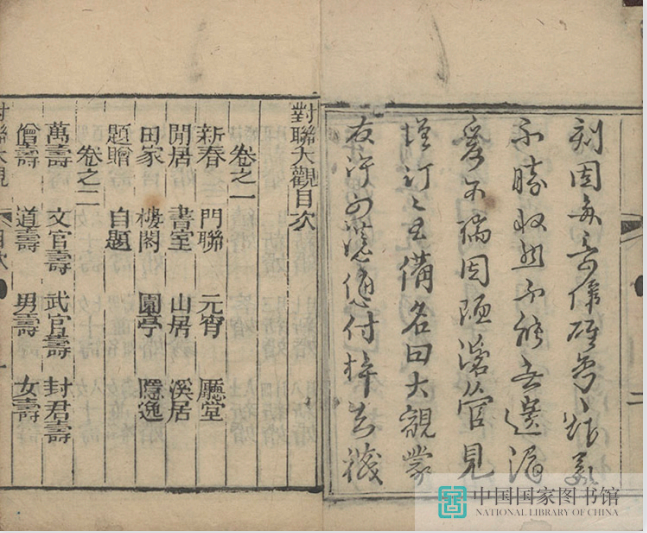 刻固
不勝收然不能無遺漏
爰不揣固陋管見
增訂之備名曰大觀蒙
友付梓
二
對聯大觀目次
卷之一
新春 門聯 元宵 廳堂
閒居 書室 山居 溪居
田家 樓閣 園亭 隱逸
題贈 自題
卷之二
萬壽 文官壽 武官壽 封君壽
僧壽 道壽 男壽 女壽
對聯大觀 目次 一
中国国家图书馆
NATIONAL LIBRARY OF CHINA